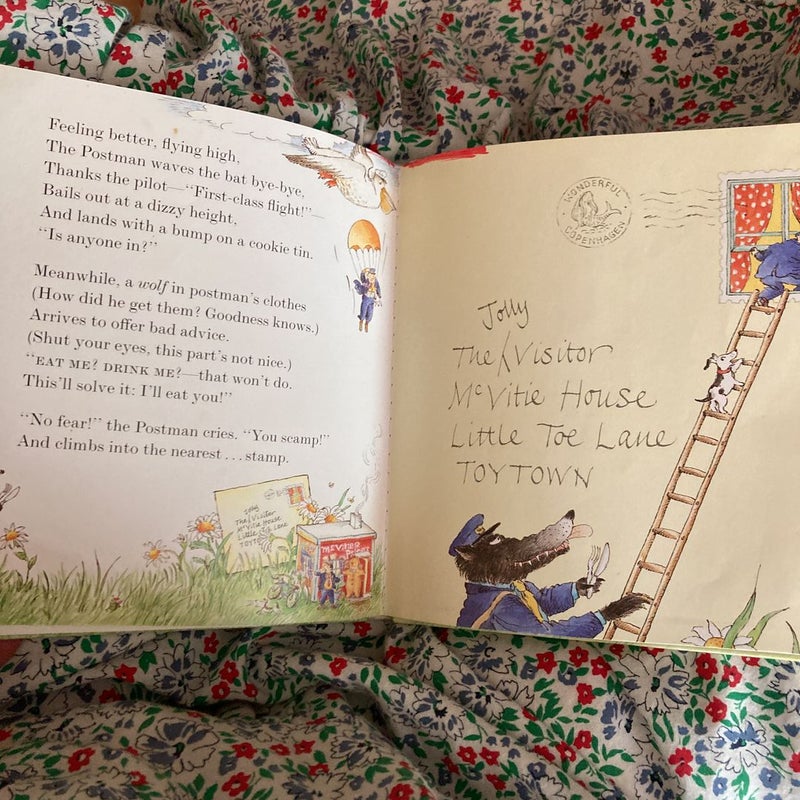 Feeling better, flying high,
The Postman waves the bat bye-bye,
Thanks the pilot—“First-class flight!”—
Bails out at a dizzy height,
And lands with a bump on a cookie tin.
“Is anyone in?”
Meanwhile, a wolf in postman’s clothes
(How did he get them? Goodness knows.)
Arrives to offer bad advice.
(Shut your eyes, this part’s not nice.)
“EAT ME? DRINK ME?—that won’t do.
This’ll solve it: I’ll eat you!”
“No fear!” the Postman cries. “You scamp!”
And climbs into the nearest . . . stamp.
Jolly
The/Visitor
McVitie House
Little Toe Lane
TOYTOWN
McVITIE
WONDERFUL
COPENHAGEN
Jolly
The/Visitor
McVitie House
Little Toe Lane
TOYTOWN